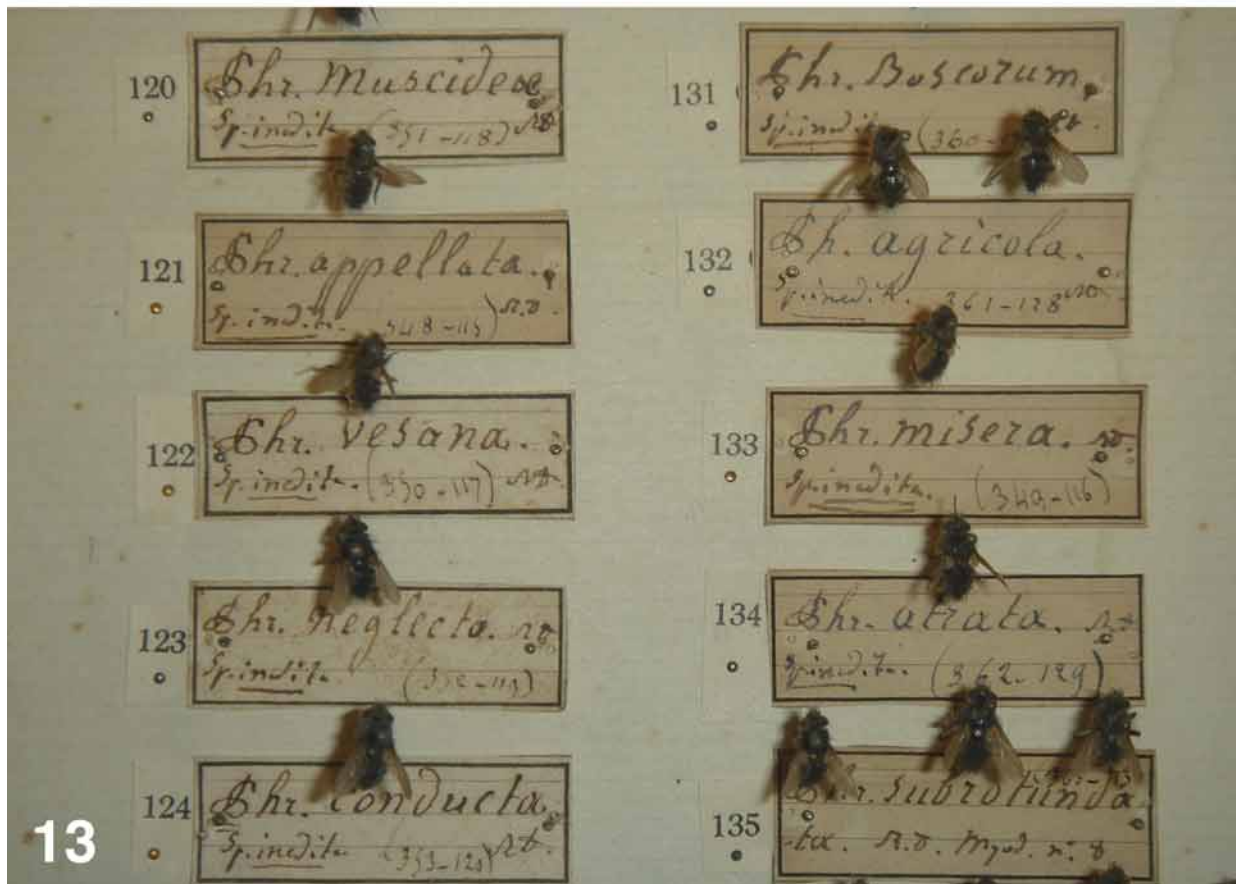 120
Phr. Muscidea
Sp. inedita. (351-118) R.D.
121
Phr. appellata.
Sp. inedita. 348-115) R.D.
122
Phr. vesana.
Sp. inedita. (350-117) R.D.
123
Phr. neglecta. R.D.
Sp. inedita. (352-119)
124
Phr. conducta
Sp. inedita (353-120) R.D.
131
Phr. Boscorum.
Sp. inedita (360-
132
Ph. agricola.
Sp. inedita. 361-128 R.D.
133
Phr. misera. R.D.
Sp. inedita. (349-116)
134
Phr. atrata. R.D.
Sp inedita. (362-129)
135
Phr. subrotunda
ta. R.D. Myod. n. 8
13